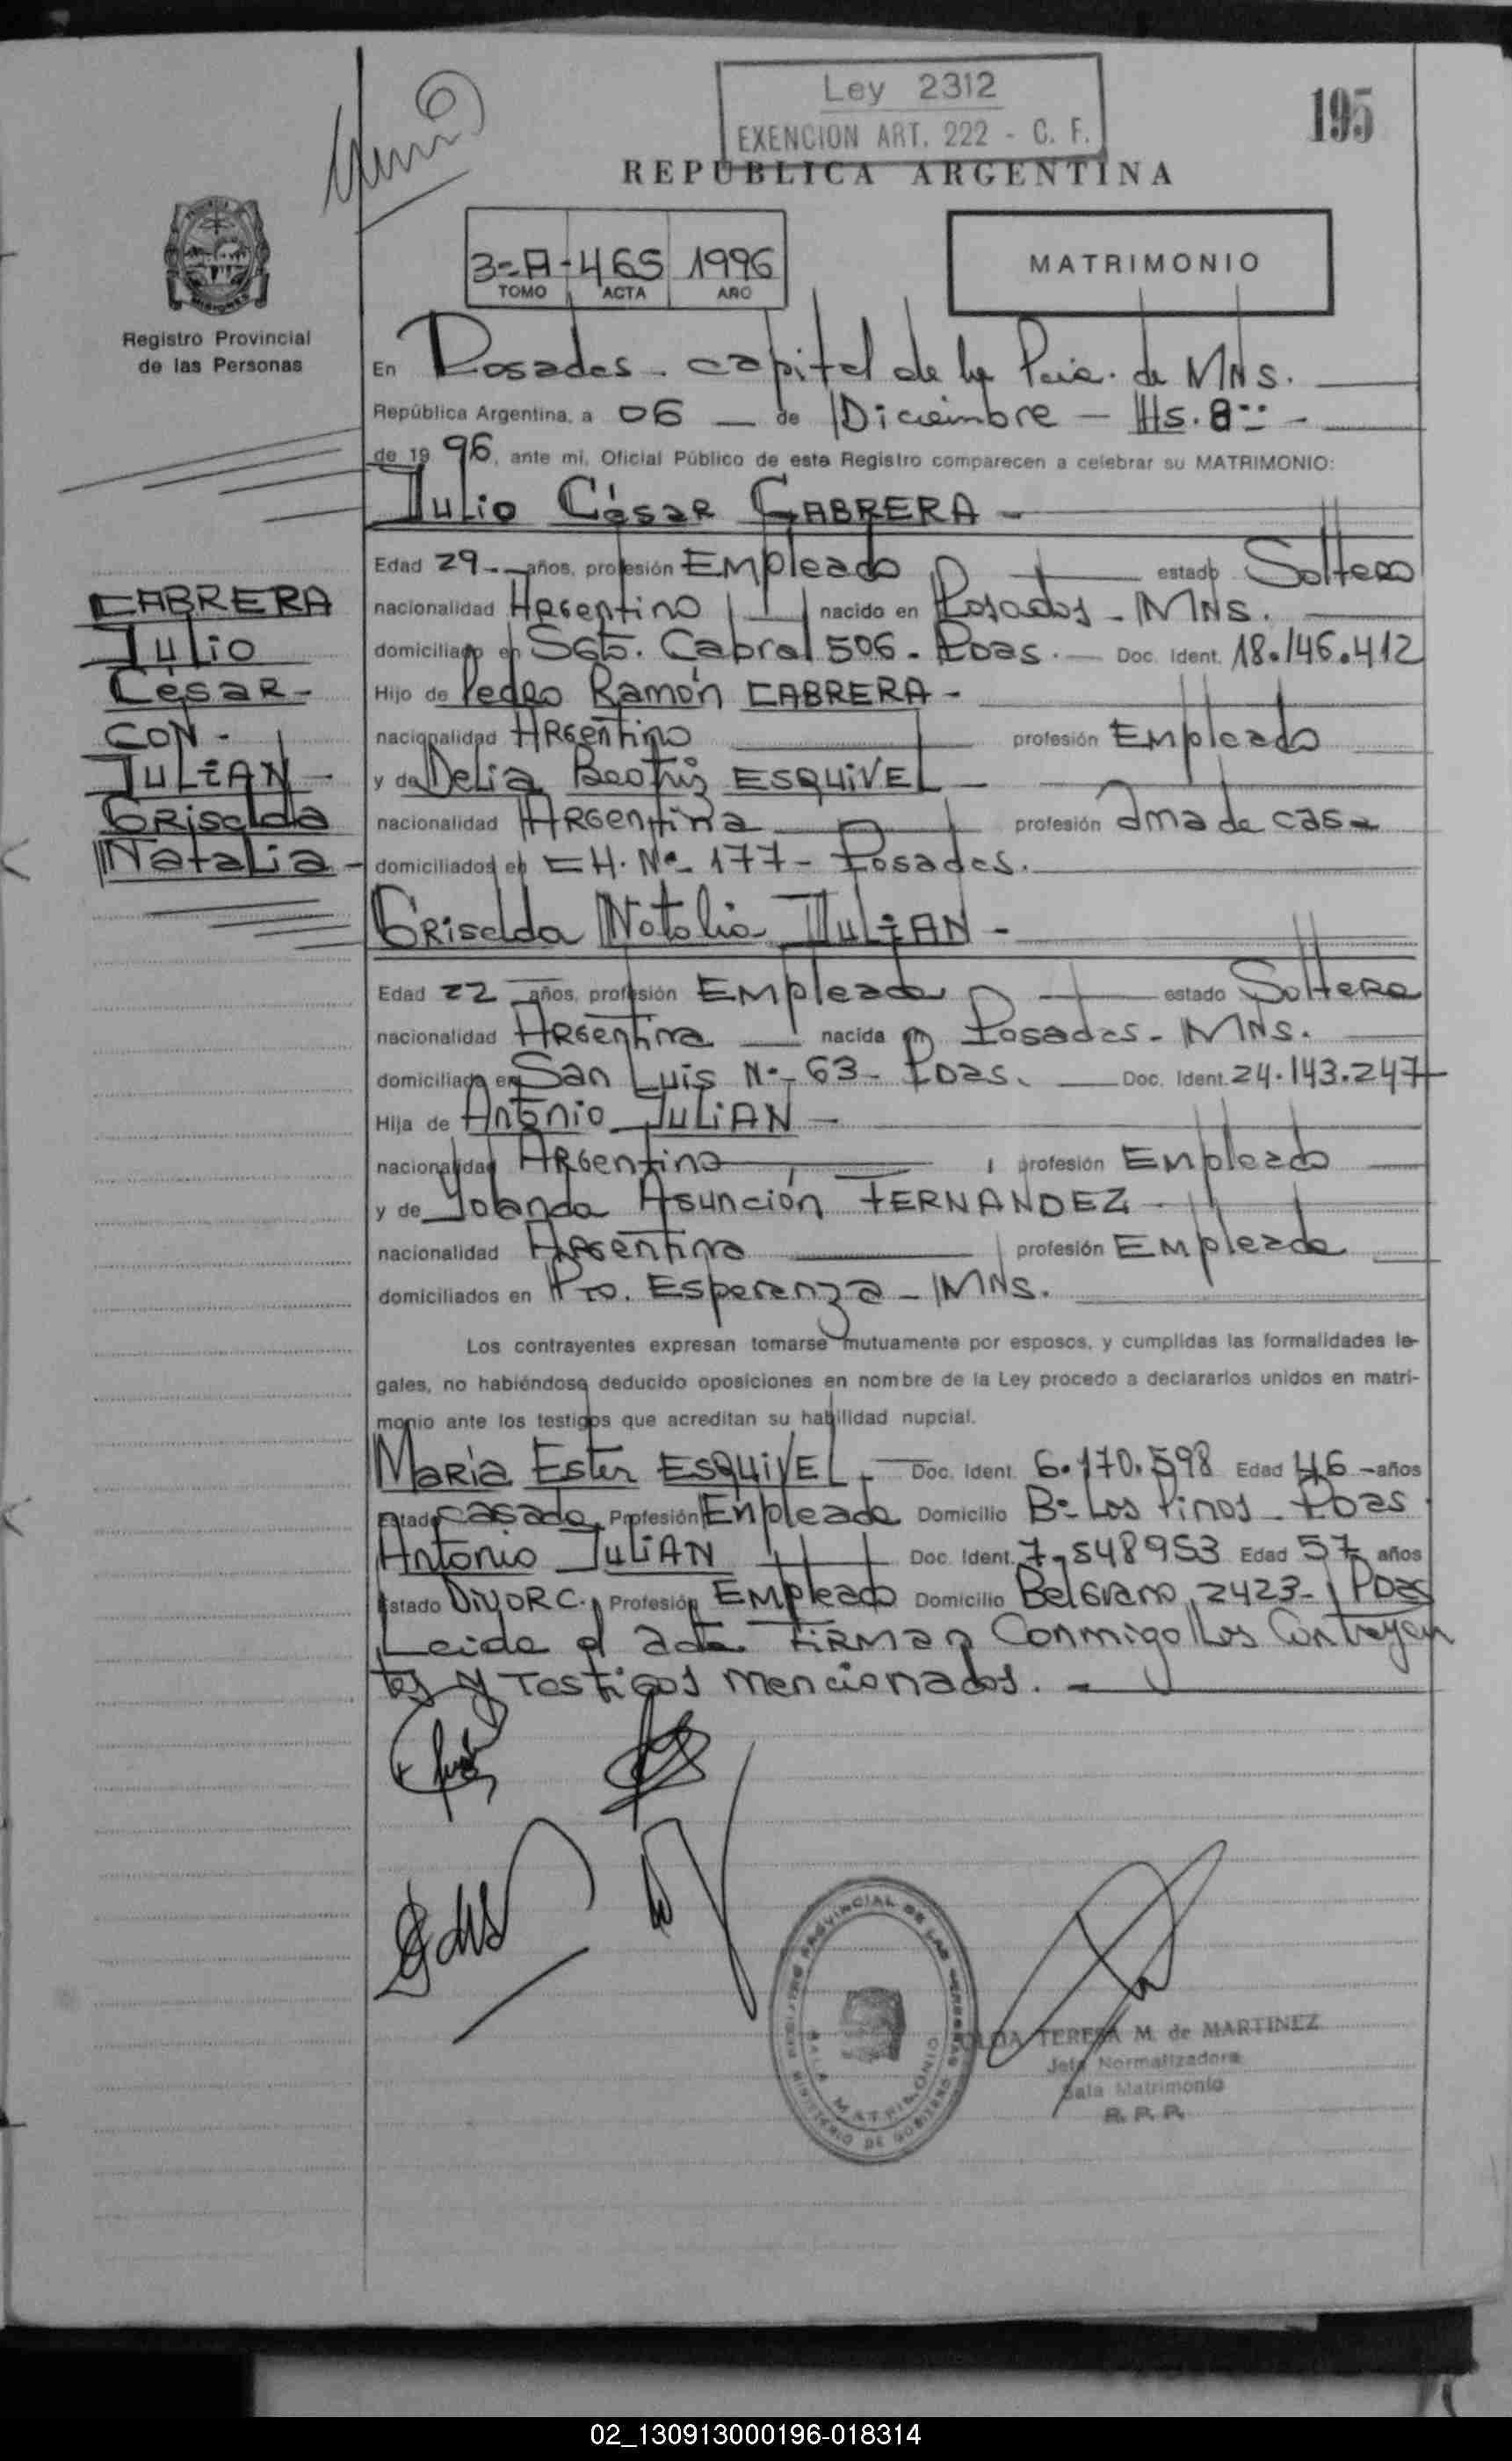 Ley 2312
EXENCION ART. 222 - C. F.
195
REPUBLICA ARGENTINA
3=A-465 1996
TOMO ACTA AÑO
MATRIMONIO
Registro Provincial
de las Personas
En Posadas - capital de la Pcia. de MNS.
República Argentina, a 06 - de Diciembre - Hs. 8::-
de 1996, ante mi, Oficial Público de este Registro comparecen a celebrar su MATRIMONIO:
Julio César CABRERA -
Edad 29 - años, profesión Empleado estado Soltero
nacionalidad Argentino nacido en Posadas - MNS.
domiciliado en Sgto. Cabral 506 - Pdas. - Doc. Ident. 18.146.412
Hijo de Pedro Ramón CABRERA -
nacionalidad Argentino profesión Empleado
y de Delia Beatriz ESQUIVEL -
nacionalidad Argentina profesión Ama de casa
domiciliados en CH. Nº 177 - Posadas.
CABRERA
Julio
César -
CON -
JULIAN -
Griselda
Natalia -
Griselda Natalia JULIAN -
Edad 22 años, profesión Empleada estado Soltera
nacionalidad Argentina nacida en Posadas - MNS.
domiciliada en San Luis Nº 63 - Pdas. - Doc. Ident. 24.143.247
Hija de Antonio JULIAN -
nacionalidad Argentino profesión Empleado
y de Yolanda Asunción FERNANDEZ -
nacionalidad Argentina profesión Empleada
domiciliados en Pto. Esperanza - MNS.
Los contrayentes expresan tomarse mutuamente por esposos, y cumplidas las formalidades le-
gales, no habiéndose deducido oposiciones en nombre de la Ley procedo a declararlos unidos en matri-
monio ante los testigos que acreditan su habilidad nupcial.
María Ester ESQUIVEL - Doc. Ident. 6.170.598 Edad 46 - años
Estado casada Profesión Empleada Domicilio Bº Los Pinos - Pdas.
Antonio JULIAN Doc. Ident. 7.548953 Edad 57 años
Estado Divorc. Profesión Empleado Domicilio Belgrano 2423 - Pdas
Leida el acta firman conmigo los contrayen
tes y testigos mencionados. -
REGISTRO PROVINCIAL DE LAS PERSONAS
SALA MATRIMONIO
MINISTERIO DE GOBIERNO
TERESA M. de MARTINEZ
Jefa Normalizadora
Sala Matrimonio
R. P. P.
02_130913000196-018314